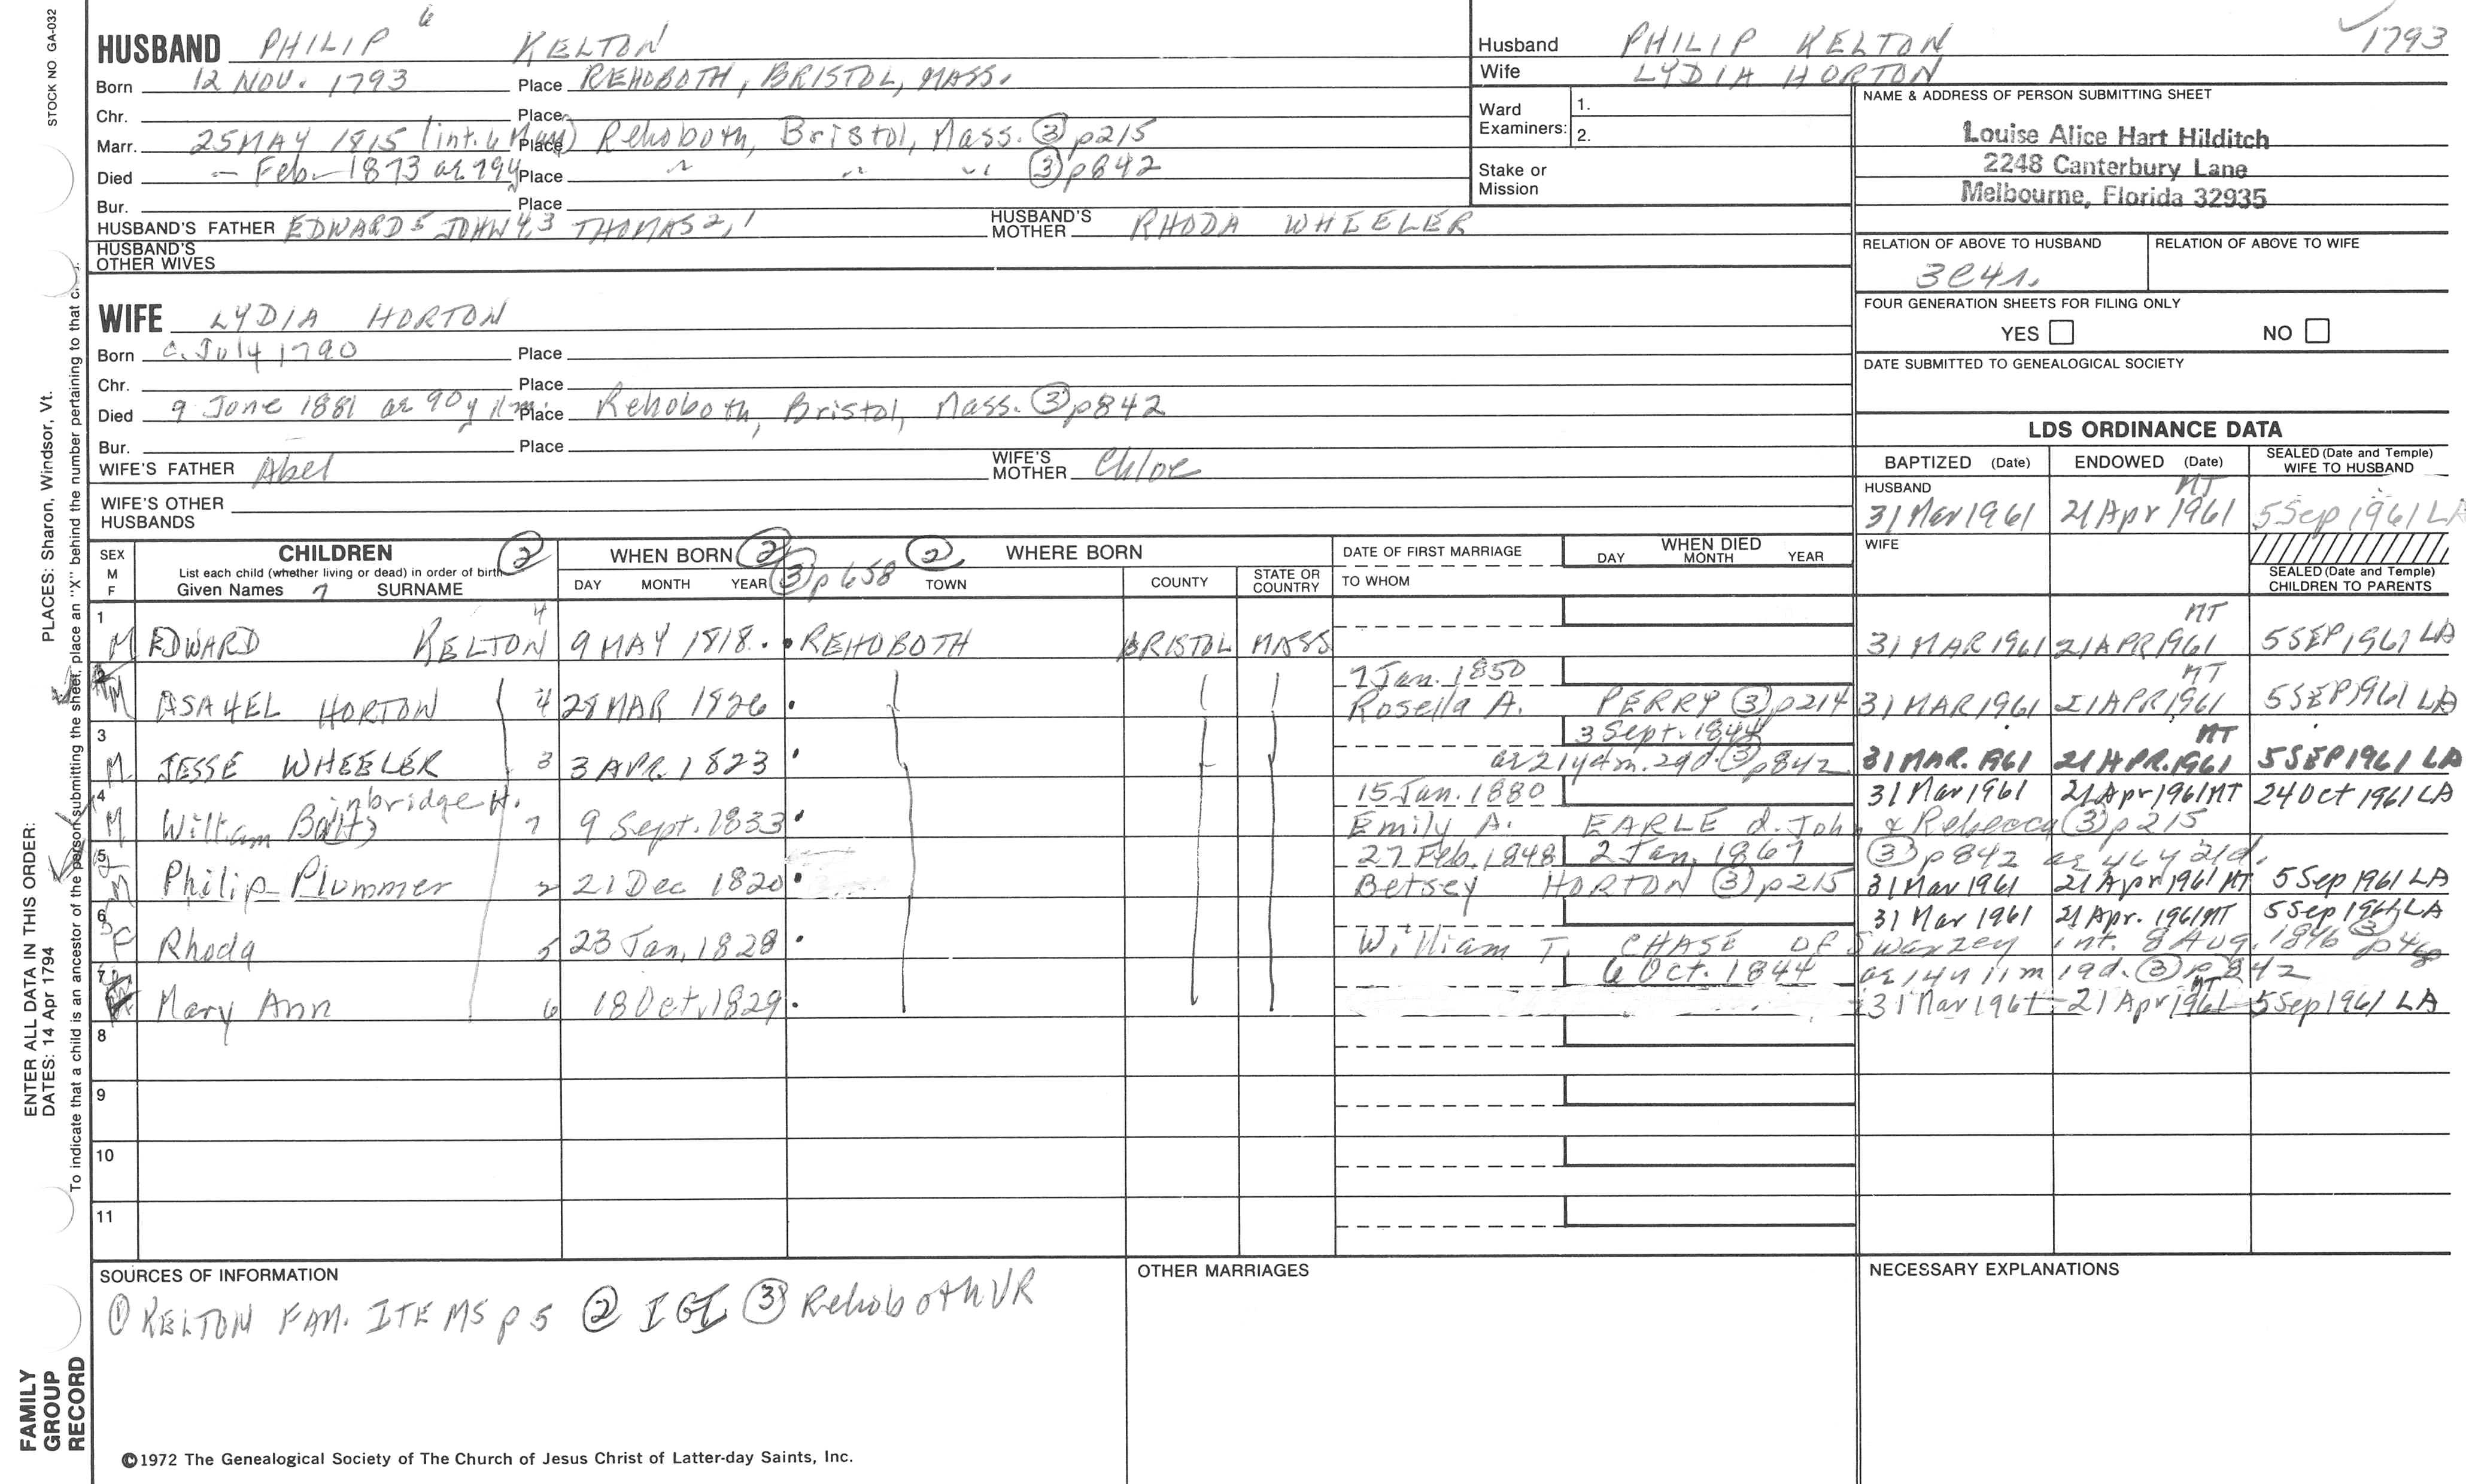 STOCK NO GA-032
HUSBAND PHILIP 6 KELTON
Born 12 NOV. 1793 Place REHOBOTH, BRISTOL, MASS.
Chr. Place
Marr. 25 MAY 1815 (int. 6 May) Place Rehoboth, Bristol, Mass. ③ p215
Died — Feb. 1873 ae 79y Place " " " ③ p842
Bur. Place
HUSBAND'S FATHER EDWARD5 JOHN4,3 THOMAS2,1 HUSBAND'S MOTHER RHODA WHEELER
HUSBAND'S OTHER WIVES
WIFE LYDIA HORTON
Born c. July 1790 Place
Chr. Place
Died 9 June 1881 ae 90y 11m. Place Rehoboth, Bristol, Mass. ③ p842
Bur. Place
WIFE'S FATHER Abel WIFE'S MOTHER Chloe
WIFE'S OTHER HUSBANDS
Husband PHILIP KELTON 1793
Wife LYDIA HORTON
Ward Examiners: 1.
2.
Stake or Mission
NAME & ADDRESS OF PERSON SUBMITTING SHEET
Louise Alice Hart Hilditch
2248 Canterbury Lane
Melbourne, Florida 32935
RELATION OF ABOVE TO HUSBAND RELATION OF ABOVE TO WIFE
3C4r.
FOUR GENERATION SHEETS FOR FILING ONLY
YES NO
DATE SUBMITTED TO GENEALOGICAL SOCIETY
LDS ORDINANCE DATA
BAPTIZED (Date) ENDOWED (Date) SEALED (Date and Temple) WIFE TO HUSBAND
HUSBAND
31 Mar 1961 21 Apr 1961 MT 5 Sep 1961 LA
WIFE
SEALED (Date and Temple) CHILDREN TO PARENTS
SEX M F CHILDREN ② WHEN BORN ② ③ p 658 ② WHERE BORN DATE OF FIRST MARRIAGE WHEN DIED
List each child (whether living or dead) in order of birth
Given Names 7 SURNAME DAY MONTH YEAR TOWN COUNTY STATE OR COUNTRY TO WHOM DAY MONTH YEAR
1 M EDWARD KELTON 9 MAY 1818. REHOBOTH BRISTOL MASS 31 MAR 1961 21 APR 1961 MT 5 SEP 1961 LA
7 Jan. 1850
2 M ASAHEL HORTON 4 28 MAR 1826 Rosella A. PERRY ③ p214 31 MAR 1961 21 APR 1961 MT 5 SEP 1961 LA
3 Sept. 1844
3 M JESSE WHEELER 3 3 APR. 1823 ae 21y 4m. 29d. ③ p842 31 MAR. 1961 21 APR. 1961 MT 5 SEP 1961 LA
15 Jan. 1880 31 Mar 1961 21 Apr 1961 MT 24 Oct 1961 LA
4 M William Bainbridge H. 7 9 Sept. 1833 Emily A. EARLE d. John & Rebecca ③ p215
27 Feb. 1848 2 Jan. 1867 ③ p842 ae 46y 21d.
5 M Philip Plummer 2 21 Dec 1820 Betsey HORTON ③ p215 31 Mar 1961 21 Apr 1961 MT 5 Sep 1961 LA
31 Mar 1961 21 Apr. 1961 MT 5 Sep 1961 LA
6 F Rhoda 5 23 Jan. 1828 William T. CHASE of Swanzey int. 8 Aug. 1846 ③
6 Oct. 1844 ae 14y 11m 19d. ③ p 842
7 Mary Ann 6 18 Oct. 1829 31 Mar 1961 21 Apr 1961 MT 5 Sep 1961 LA
8
9
10
11
SOURCES OF INFORMATION OTHER MARRIAGES NECESSARY EXPLANATIONS
① KELTON FAM. ITEMS p 5 ② IGI ③ Rehoboth VR
©1972 The Genealogical Society of The Church of Jesus Christ of Latter-day Saints, Inc.
ENTER ALL DATA IN THIS ORDER: PLACES: Sharon, Windsor, Vt.
DATES: 14 Apr 1794
To indicate that a child is an ancestor of the person submitting the sheet, place an "X" behind the number pertaining to that
FAMILY GROUP RECORD